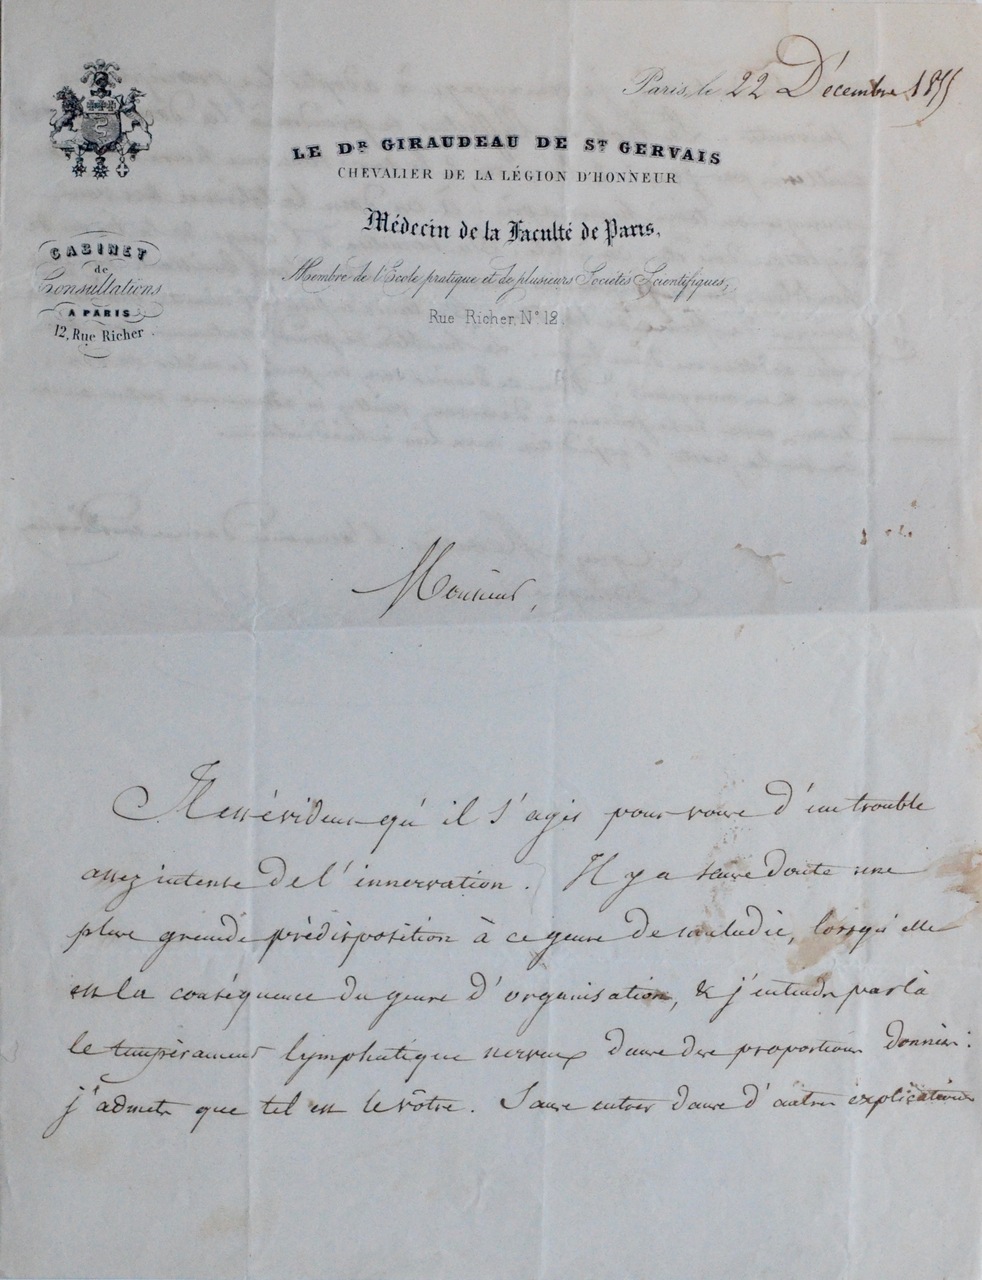 Paris, le 22 Décembre 1855
LE DR GIRAUDEAU DE ST GERVAIS
CHEVALIER DE LA LÉGION D'HONNEUR
Médecin de la Faculté de Paris,
Membre de l'École pratique et de plusieurs Sociétés Scientifiques,
Rue Richer, No 12.
CABINET
de
Consultations
A PARIS
12, Rue Richer
Monsieur,
Il est évident qu'il s'agit pour vous d'un trouble
assez intense de l'innervation. Il y a sans doute une
plus grande prédisposition à ce genre de maladie, lorsqu'elle
est la conséquence du genre d'organisation, & j'entends par là
le tempérament lymphatique nerveux dans des proportions données:
j'admets que tel est le vôtre. Sans entrer dans d'autres explications